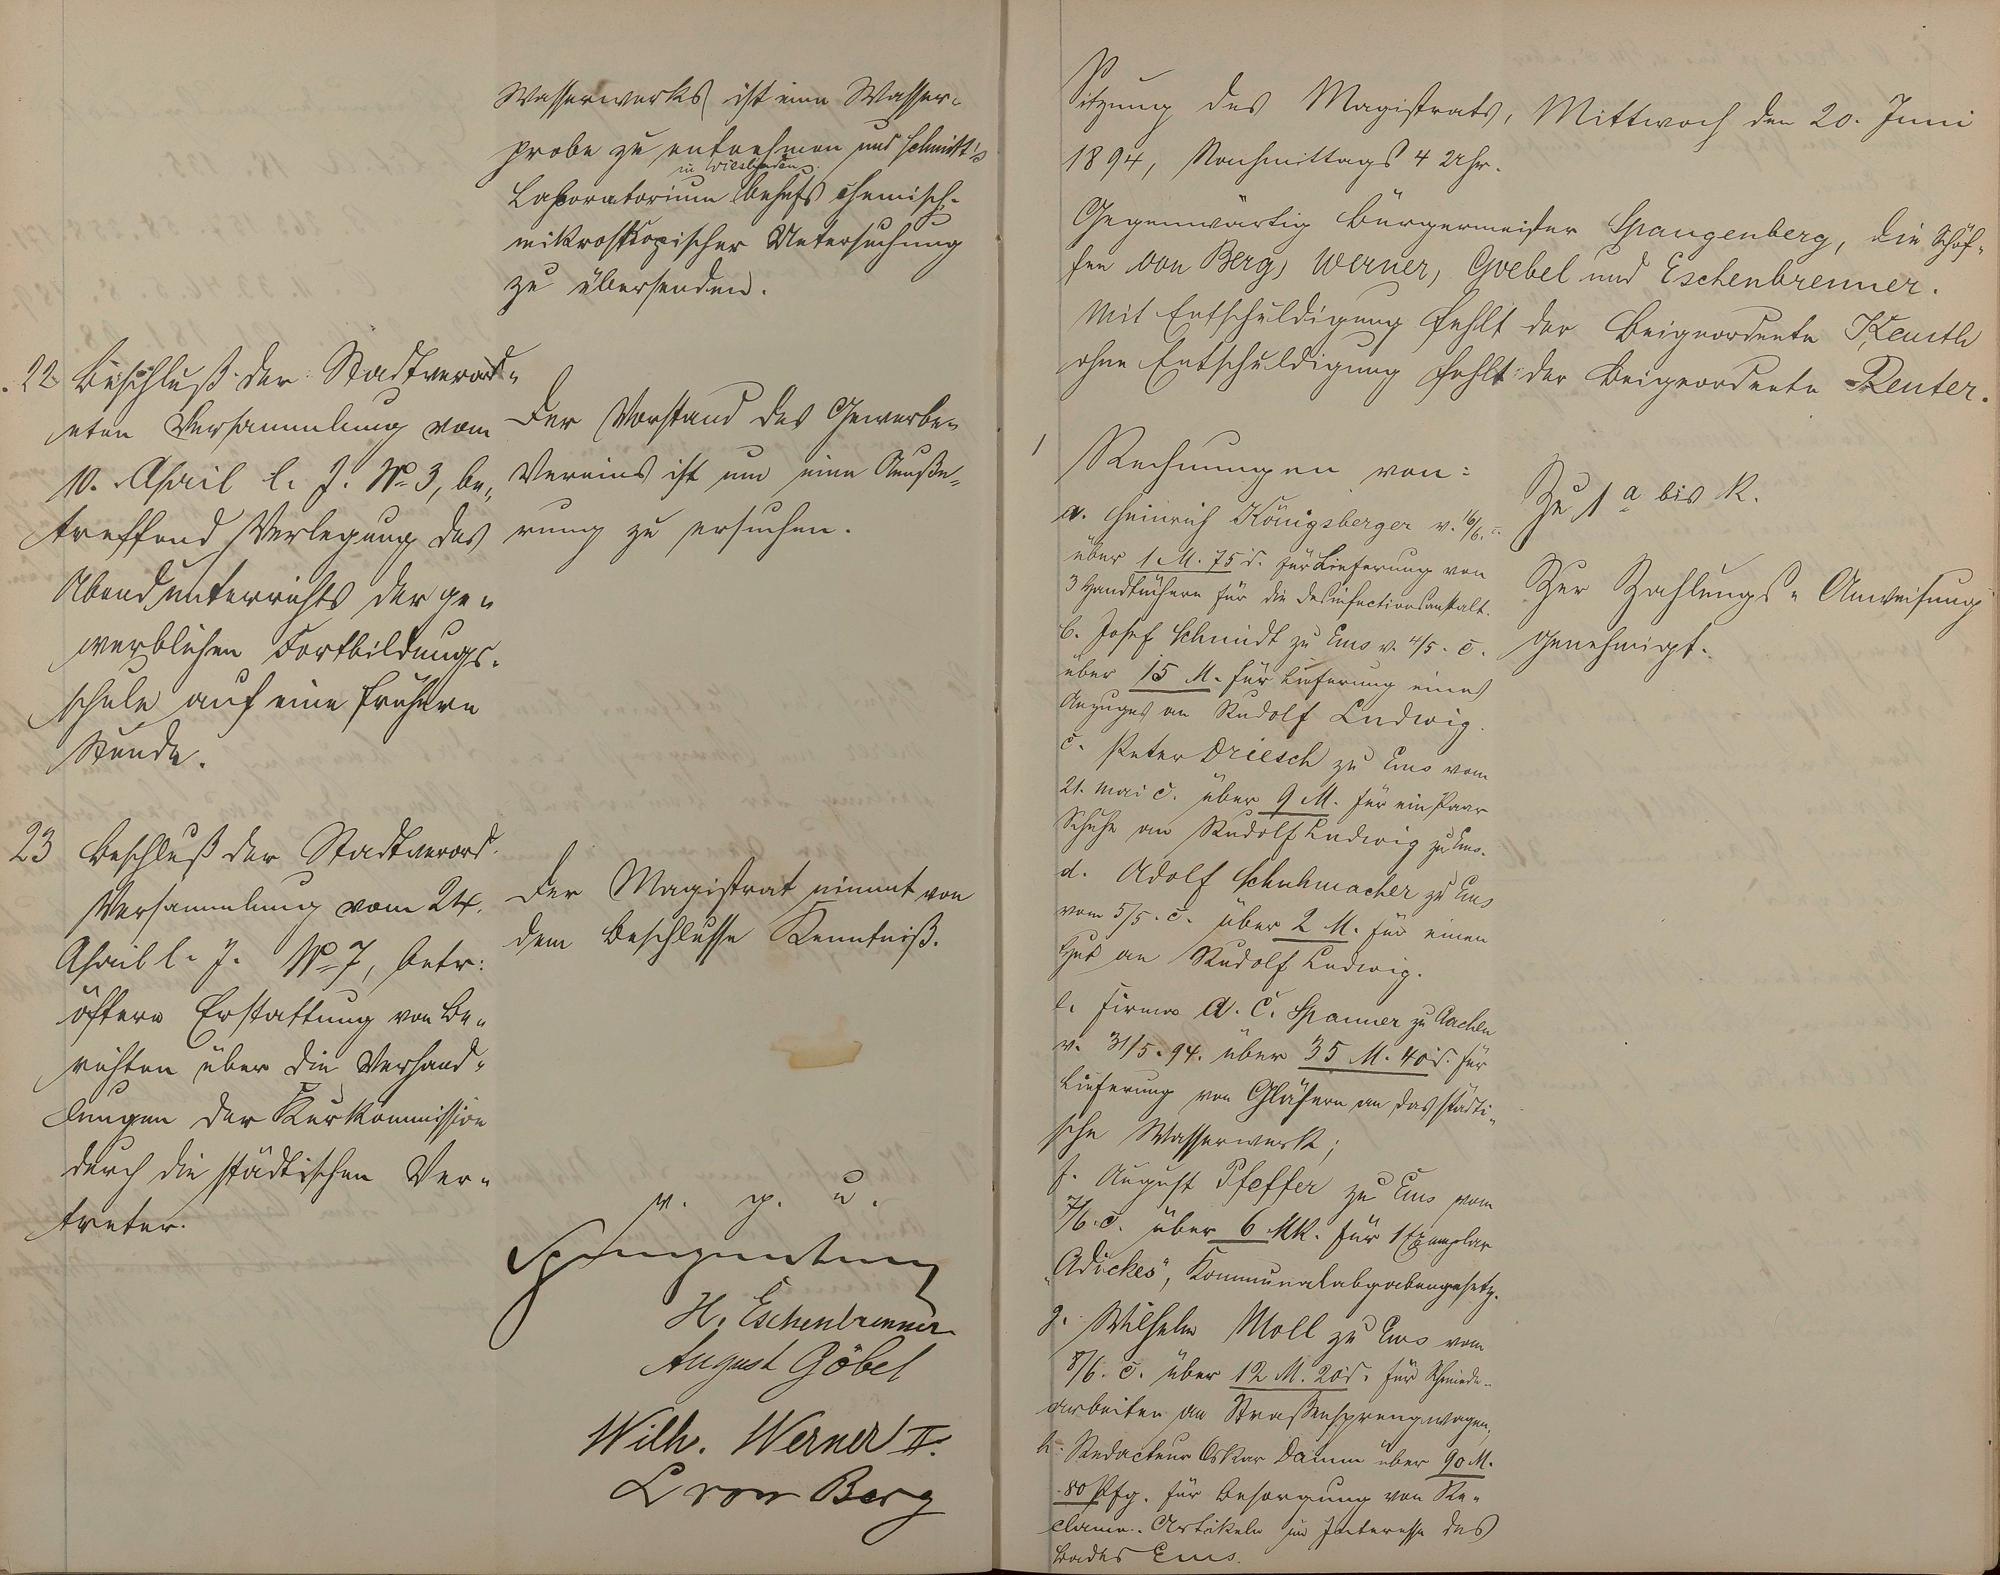 Wasserwerks ist eine Wasser-
probe zu entnehmen und Schmidt's
in Wiesbaden
Laboratorium behufs chemisch-
mikroskopischer Untersuchung
zu übersenden.
22 Beschluß der Stadtverord-
neten Versammlung vom
10. April l. J. No 3, be-
treffend Verlegung des
Abendunterrichts der ge-
werblichen Fortbildungs-
schule auf eine frühere
Stunde.
Der Vorstand des Gewerbe-
Vereins ist um eine Äuße-
rung zu ersuchen.
23 Beschluß der Stadtverord.
Versammlung vom 24.
April l. J. No 7, betr:
öftere Erstattung von Be-
richten über die Verhand-
lungen der Kurkommission
durch die städtischen Ver-
treter.
Der Magistrat nimmt von
dem Beschlusse Kenntniß.
v. g. u.
Spangenberg
H. Eschenbrenner
August Göbel
Wilh. Werner II.
L von Berg
Sitzung des Magistrats, Mittwoch den 20. Juni
1894, Nachmittags 4 Uhr.
Gegenwärtig Bürgermeister Spangenberg, die Schöf-
fen von Berg, Werner, Goebel und Eschenbrenner.
Mit Entschuldigung fehlt der Beigeordnete
ohne Entschuldigung fehlt der Beigeordnete Reuter.
1 Rechnungen von:
a. Heinrich Königsberger v. 16/6. c.
über 1 M. 75 d. für Lieferung von
3 Handtüchern für die Desinfectionsanstalt.
b. Josef Schmidt zu Ems v. 4/5. c.
über 15 M. für Lieferung eines
Anzuges an Rudolf Ludwig.
c. Peter Driesch zu Ems vom
21. Mai c. über 9 M. für ein Paar
Schuhe an Rudolf Ludwig zu Ems.
d. Adolf Schuhmacher zu Ems
vom 5/5. c. über 2 M. für einen
Hut an Rudolf Ludwig.
e. Firma A. C. Spanner zu Aachen
v. 31/5. 94. über 35 M. 40 d. für
Lieferung von Gläsern an das städti-
sche Wasserwerk;
f. August Pfeffer zu Ems vom
7/6. c. über 6 Mk. für 1 Exemplar
„Adickes", Kommunalabgabengesetz.
g. Wilhelm Moll zu Ems vom
8/6. c. über 12 M. 20 d. für Schmiede-
arbeiten an Straßensprengwagen,
h. Redacteur Oskar Damm über 90 M.
80 Pfg. für Besorgung von Re-
clame-Artikeln im Interesse des
Bades Ems.
Zu 1 a bis k.
Zur Zahlungs-Anweisung
genehmigt.